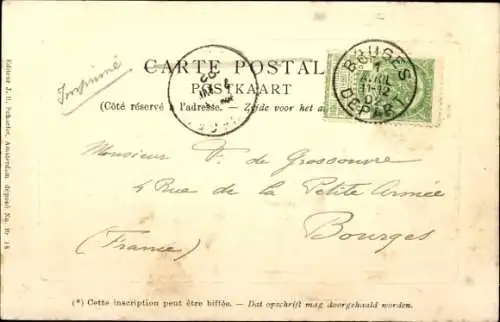 CARTE POSTAL
POSTKAART
(Côté réservé à l'adresse. — Zijde voor het a
Imprimé
BRUGES
AVRIL
11-12
DEPART
Monsieur F. de Grossouvre
4 Rue de la Petite Armée
Bourges
(France)
(*) Cette inscription peut être biffée. — Dat opschrift mag doorgehaald worden.
Editeur J. H. Schaefer, Amsterdam, déposé No. Br. 18